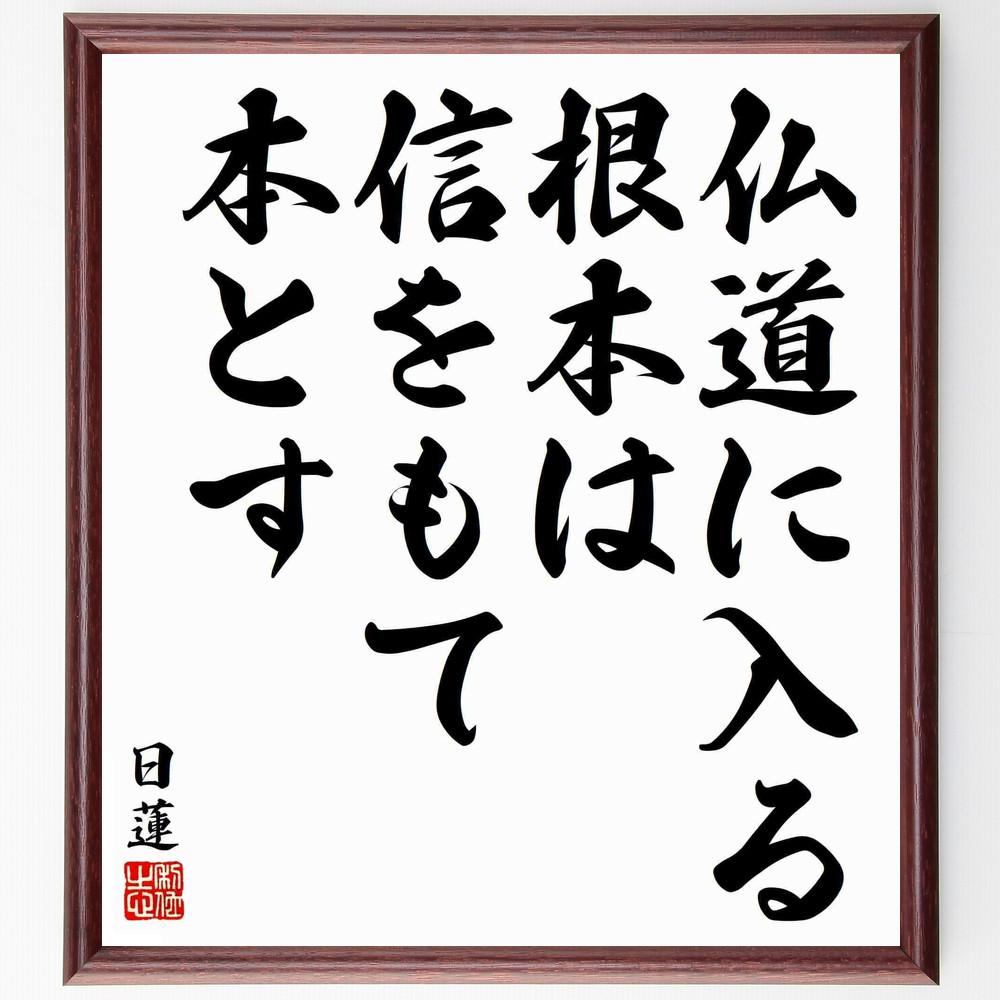 仏道に入る
根本は
信をもて
本とす
日蓮